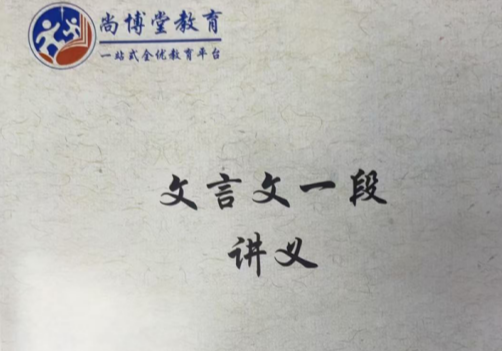 尚博堂教育
一站式全优教育平台
文言文一段
讲义